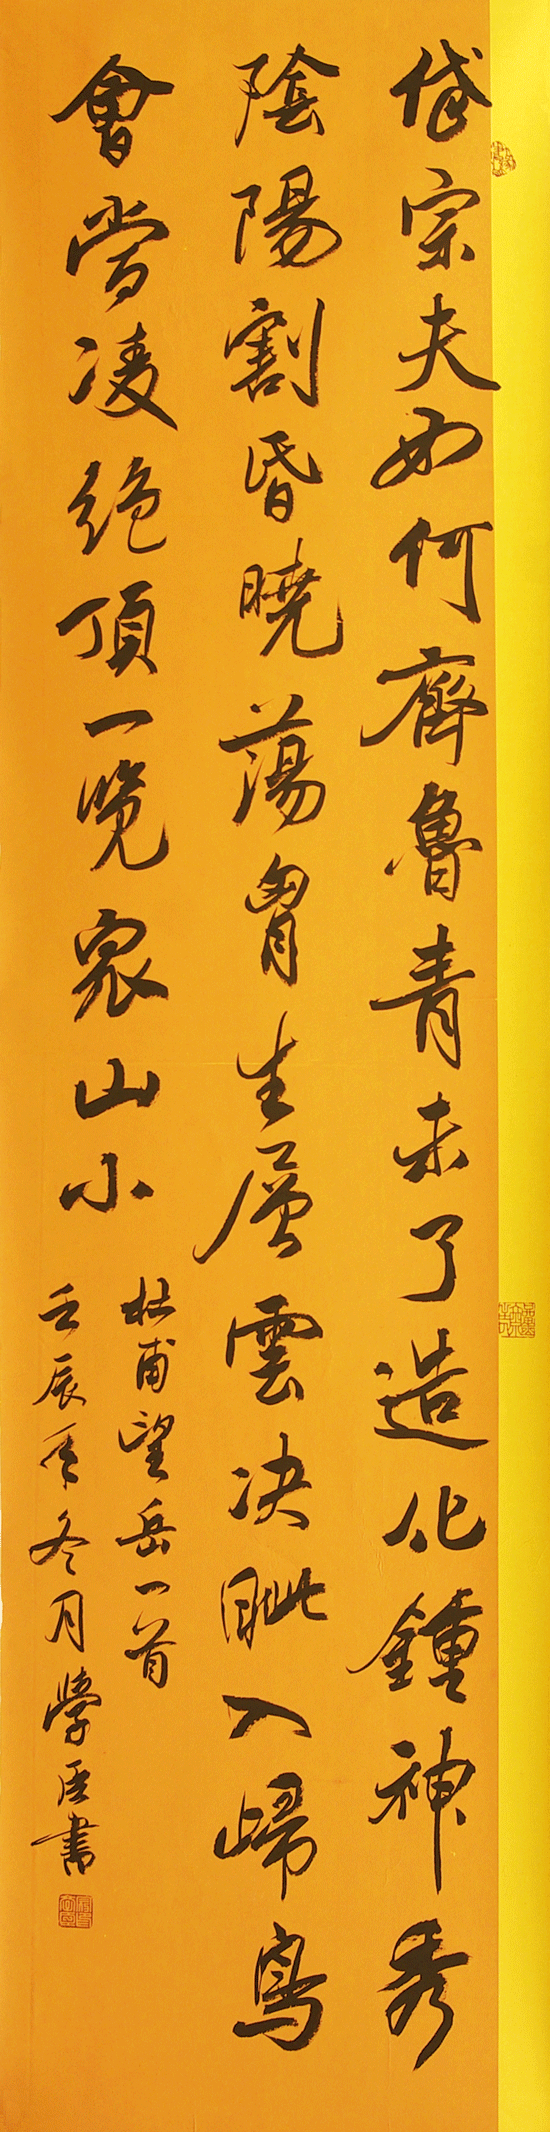 岱宗夫如何齊魯青未了造化鍾神秀
陰陽割昏曉蕩胷生層雲决眦入歸鳥
會當凌絶頂一览衆山小
杜甫望岳一首
壬辰年冬月學臣書